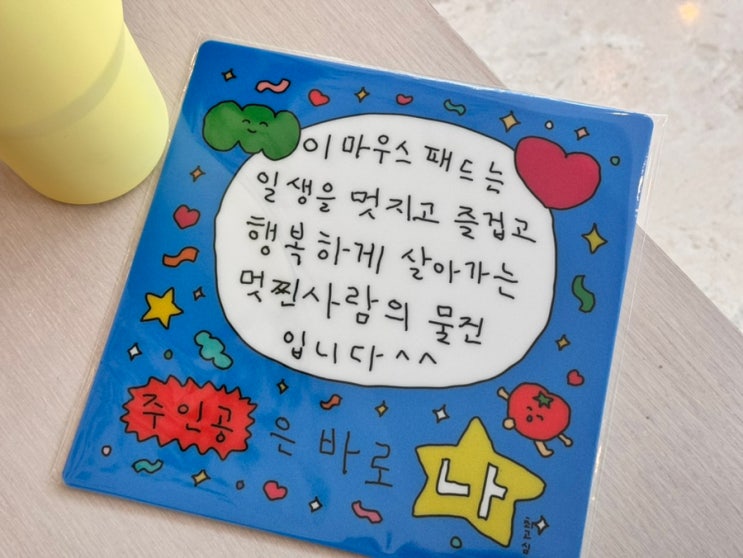 이 마우스 패드는
일생을 멋지고 즐겁고
행복하게 살아가는
멋찐사람의 물건
입니다^^
주인공은 바로 나